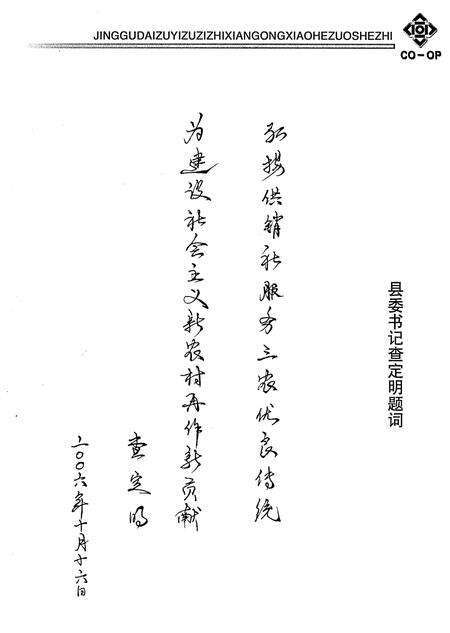 JINGGUDAIZUYIZUZIZHIXIANGONGXIAOHEZUOSHEZHI
CO-OP
县委书记查定明题词
弘扬供销社服务三农优良传统
为建设社会主义新农村再作新贡献
查定明
二〇〇六年十月十六日